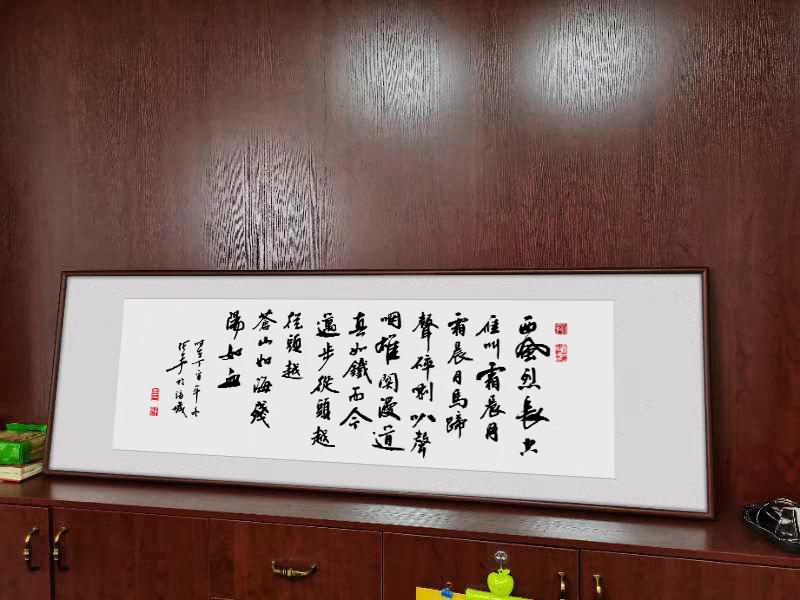 西風烈長空
雁叫霜晨月
霜晨月馬蹄
聲碎喇叭聲
咽雄関漫道
真如鐵而今
邁步從頭越
從頭越
蒼山如海殘
陽如血
丁酉年冬